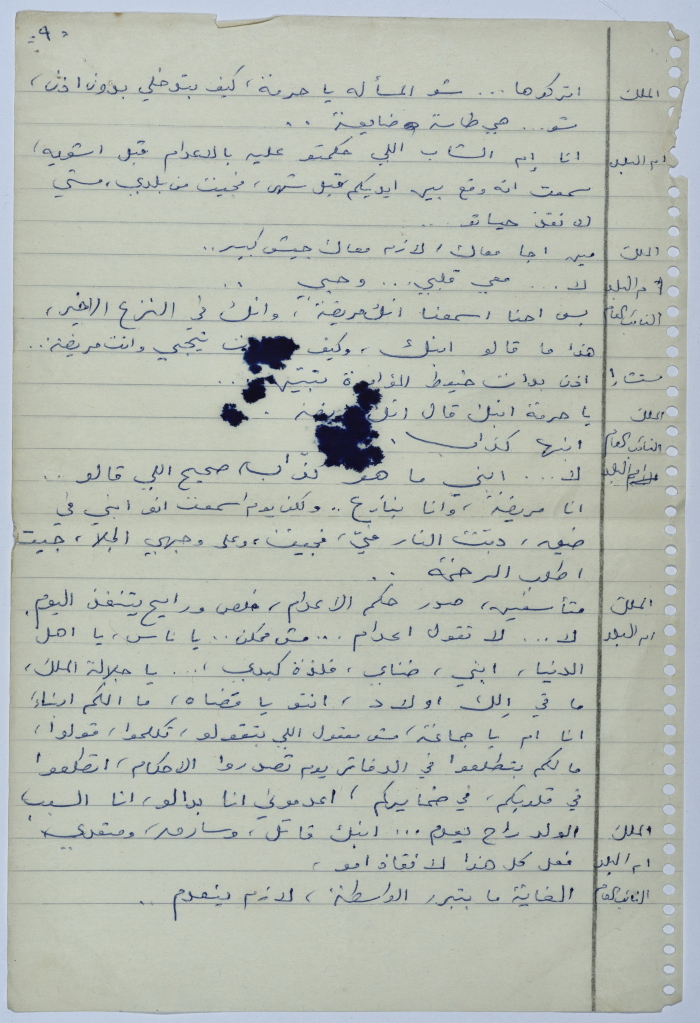 ٩
الملك اتركوها... شو المسأله يا حرمة، كيف بتدخلي بدون اذن،
شو... هي طاسة ضايعة..
ام البلد انا إم الشاب اللي حكمتو عليه بالاعدام قبل اشويه،
سمعت انه وقع بين ايديكم قبل شهر، فجيت من بلدي، مشي
لانقذ حياتو...
الملك مين اجا معاك، لازم معاك جيش كبير..
ام البلد لا... معي قلبي... وحبي ..
النائب العام بس احنا اسمعنا انك مريضة، وانك في النزع الاخير،
هذا ما قالو ابنك، وكيف تيجي وانت مريضة..
مستشار١ اذن بدأت خيوط المؤامرة ...
الملك يا حرمة ابنك قال انك مريضة..
النائب العام ابنها كذاب.
ام البلد لا... ابني ما هو كذاب، صحيح اللي قالو..
انا مريضة، وانا بنازع.. ولكن يوم اسمعت انو ابني في
ضيق، دبت النار فيّ، فجيت، وعلى وجهي الجلا، جيت
اطلب الرحمة..
الملك متأسفين، صدر حكم الاعدام، خلص ورايح يتنفذ اليوم.
ام البلد لا... لا تقول اعدام... مش ممكن.. يا ناس، يا اهل
الدنيا، ابني، ضناي، فلذة كبدي،... يا جلالة الملك،
ما في إلك اولاد، انتو يا قضاه، ما الكم ابناء،
انا ام يا جماعة، مش معقول اللي بتقولو، تكلموا، قولوا،
مالكم بتطلعوا في الدفاتر يوم تصدروا الاحكام، اتطلعوا
في قلوبكم، في ضمايركم، اعدموني انا بدالو، انا السبب
الملك الولد راح يعدم... ابنك قاتل، وسارق، ومتعدي.
ام البلد فعل كل هذا لانقاذ امو،
النائب العام الغاية ما بتبرر الواسطة، لازم ينعدم..